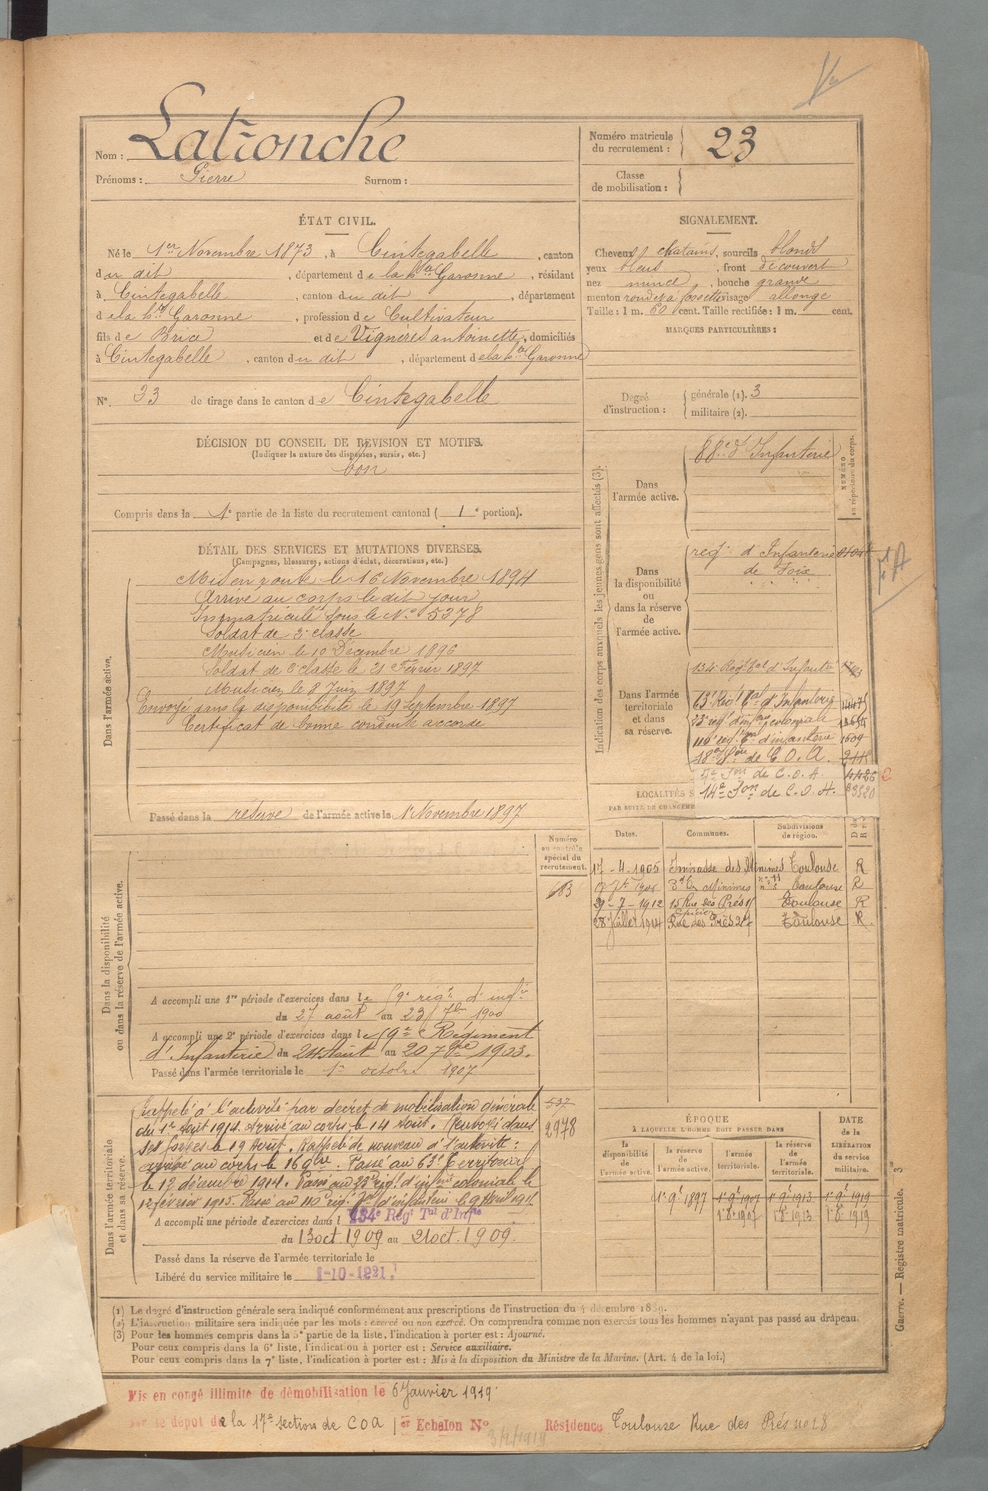 Nom : Latronche
Prénoms : Pierre Surnom :
Numéro matricule du recrutement : 23
Classe de mobilisation :
ÉTAT CIVIL.
Né le 1er Novembre 1873, à Cintegabelle, canton
du dit, département de la hte Garonne, résidant
à Cintegabelle, canton du dit, département
de la hte Garonne, profession de Cultivateur
fils de Brice et de Vignères antoinette, domiciliés
à Cintegabelle, canton du dit, département de la hte Garonne
N° 23 de tirage dans le canton de Cintegabelle
SIGNALEMENT.
Cheveux chatains, sourcils blonds
yeux bleus, front découvert
nez mince, bouche grande
menton rond et à fossette visage allongé
Taille : 1 m. 60 cent. Taille rectifiée : 1 m. cent.
MARQUES PARTICULIÈRES :
Degré d'instruction : générale (1). 3
militaire (2).
DÉCISION DU CONSEIL DE REVISION ET MOTIFS.
(Indiquer la nature des dispenses, sursis, etc.)
bon
Compris dans la 1e partie de la liste du recrutement cantonal ( 1e portion).
DÉTAIL DES SERVICES ET MUTATIONS DIVERSES.
(Campagnes, blessures, actions d'éclat, décorations, etc.)
Dans l'armée active.
Mis en route le 16 Novembre 1894
Arrivé au corps le dit jour
Immatriculé sous le No 5378
Soldat de 2e classe
Musicien le 10 Décembre 1896
Soldat de 2e classe le 21 Février 1897
Musicien le 8 Juin 1897
Envoyé dans la disponibilité le 19 Septembre 1897
Certificat de bonne conduite accordé
Passé dans la réserve de l'armée active le 1 Novembre 1897
Indication des corps auxquels les jeunes gens sont affectés (3).
NUMÉRO au répertoire du corps.
Dans l'armée active.
88e d'Infanterie
Dans la disponibilité ou dans la réserve de l'armée active.
régt d'Infanterie
de Foix
Dans l'armée territoriale et dans sa réserve.
134e Regt tal d'Infanterie
23e régt d'infrie coloniale
116e régt d'infanterie 1609
18e Son de C.O.A.
de C.O.A.
14e Son de C.O.A.
LOCALITÉS
PAR SUITE DE CHANGEME
Dates. Communes. Subdivisions de région.
17-4-1905 Impasse des Minimes Toulouse R
Minimes Toulouse R
29-7-1912 15 Rue des Prés Toulouse R
28 Juillet 1914 Rue des Prés Toulouse R.
Numéro au contrôle spécial du recrutement.
Dans la disponibilité ou dans la réserve de l'armée active.
A accompli une 1re période d'exercices dans le 59e régt d'infie
du 27 août au 23 7bre 1900
A accompli une 2e période d'exercices dans le 59e Régiment
d'Infanterie du 24 Août au 20 7bre 1903.
Passé dans l'armée territoriale le 1er octobre 1907
Dans l'armée territoriale et dans sa réserve.
537
2978
Rappelé à l'activité par décret de mobilisation générale
du 1er Août 1914. Arrivé au corps le 14 Août. Renvoyé dans
ses foyers le 19 Août. Rappelé de nouveau à l'activité :
arrivé au corps le 16 9bre. Passé au 63e Territorial
le 12 décembre 1914. Passé au 23e rég. d'infrie coloniale le
12 février 1915. Passé au 116e rég. d'infanterie le 9 Avril 1915
A accompli une période d'exercices dans l 134e Régt Tal d'Infie
du 13 oct 1909 au 21 oct 1909.
Passé dans la réserve de l'armée territoriale le
Libéré du service militaire le 1-10-1921.
ÉPOQUE
A LAQUELLE L'HOMME DOIT PASSER DANS
la disponibilité de l'armée active.
la réserve de l'armée active.
l'armée territoriale.
la réserve de l'armée territoriale.
DATE de la LIBÉRATION du service militaire.
1er 9bre 1897 1er 9bre 1907 1er 9bre 1913 1er 9bre 1919
1er 8bre 1907 1er 8bre 1913 1er 8bre 1919
Guerre. — Registre matricule. 3
(1) Le degré d'instruction générale sera indiqué conformément aux prescriptions de l'instruction du 4 décembre 1889.
(2) L'instruction militaire sera indiquée par les mots : exercé ou non exercé. On comprendra comme non exercés tous les hommes n'ayant pas passé au drapeau.
(3) Pour les hommes compris dans la 5e partie de la liste, l'indication à porter est : Ajourné.
Pour ceux compris dans la 6e liste, l'indication à porter est : Service auxiliaire.
Pour ceux compris dans la 7e liste, l'indication à porter est : Mis à la disposition du Ministre de la Marine. (Art. 4 de la loi.)
Mis en congé illimité de démobilisation le 6 Janvier 1919
dépôt de la 17e section de COA 1er Echelon No Résidence Toulouse Rue des Prés no 28